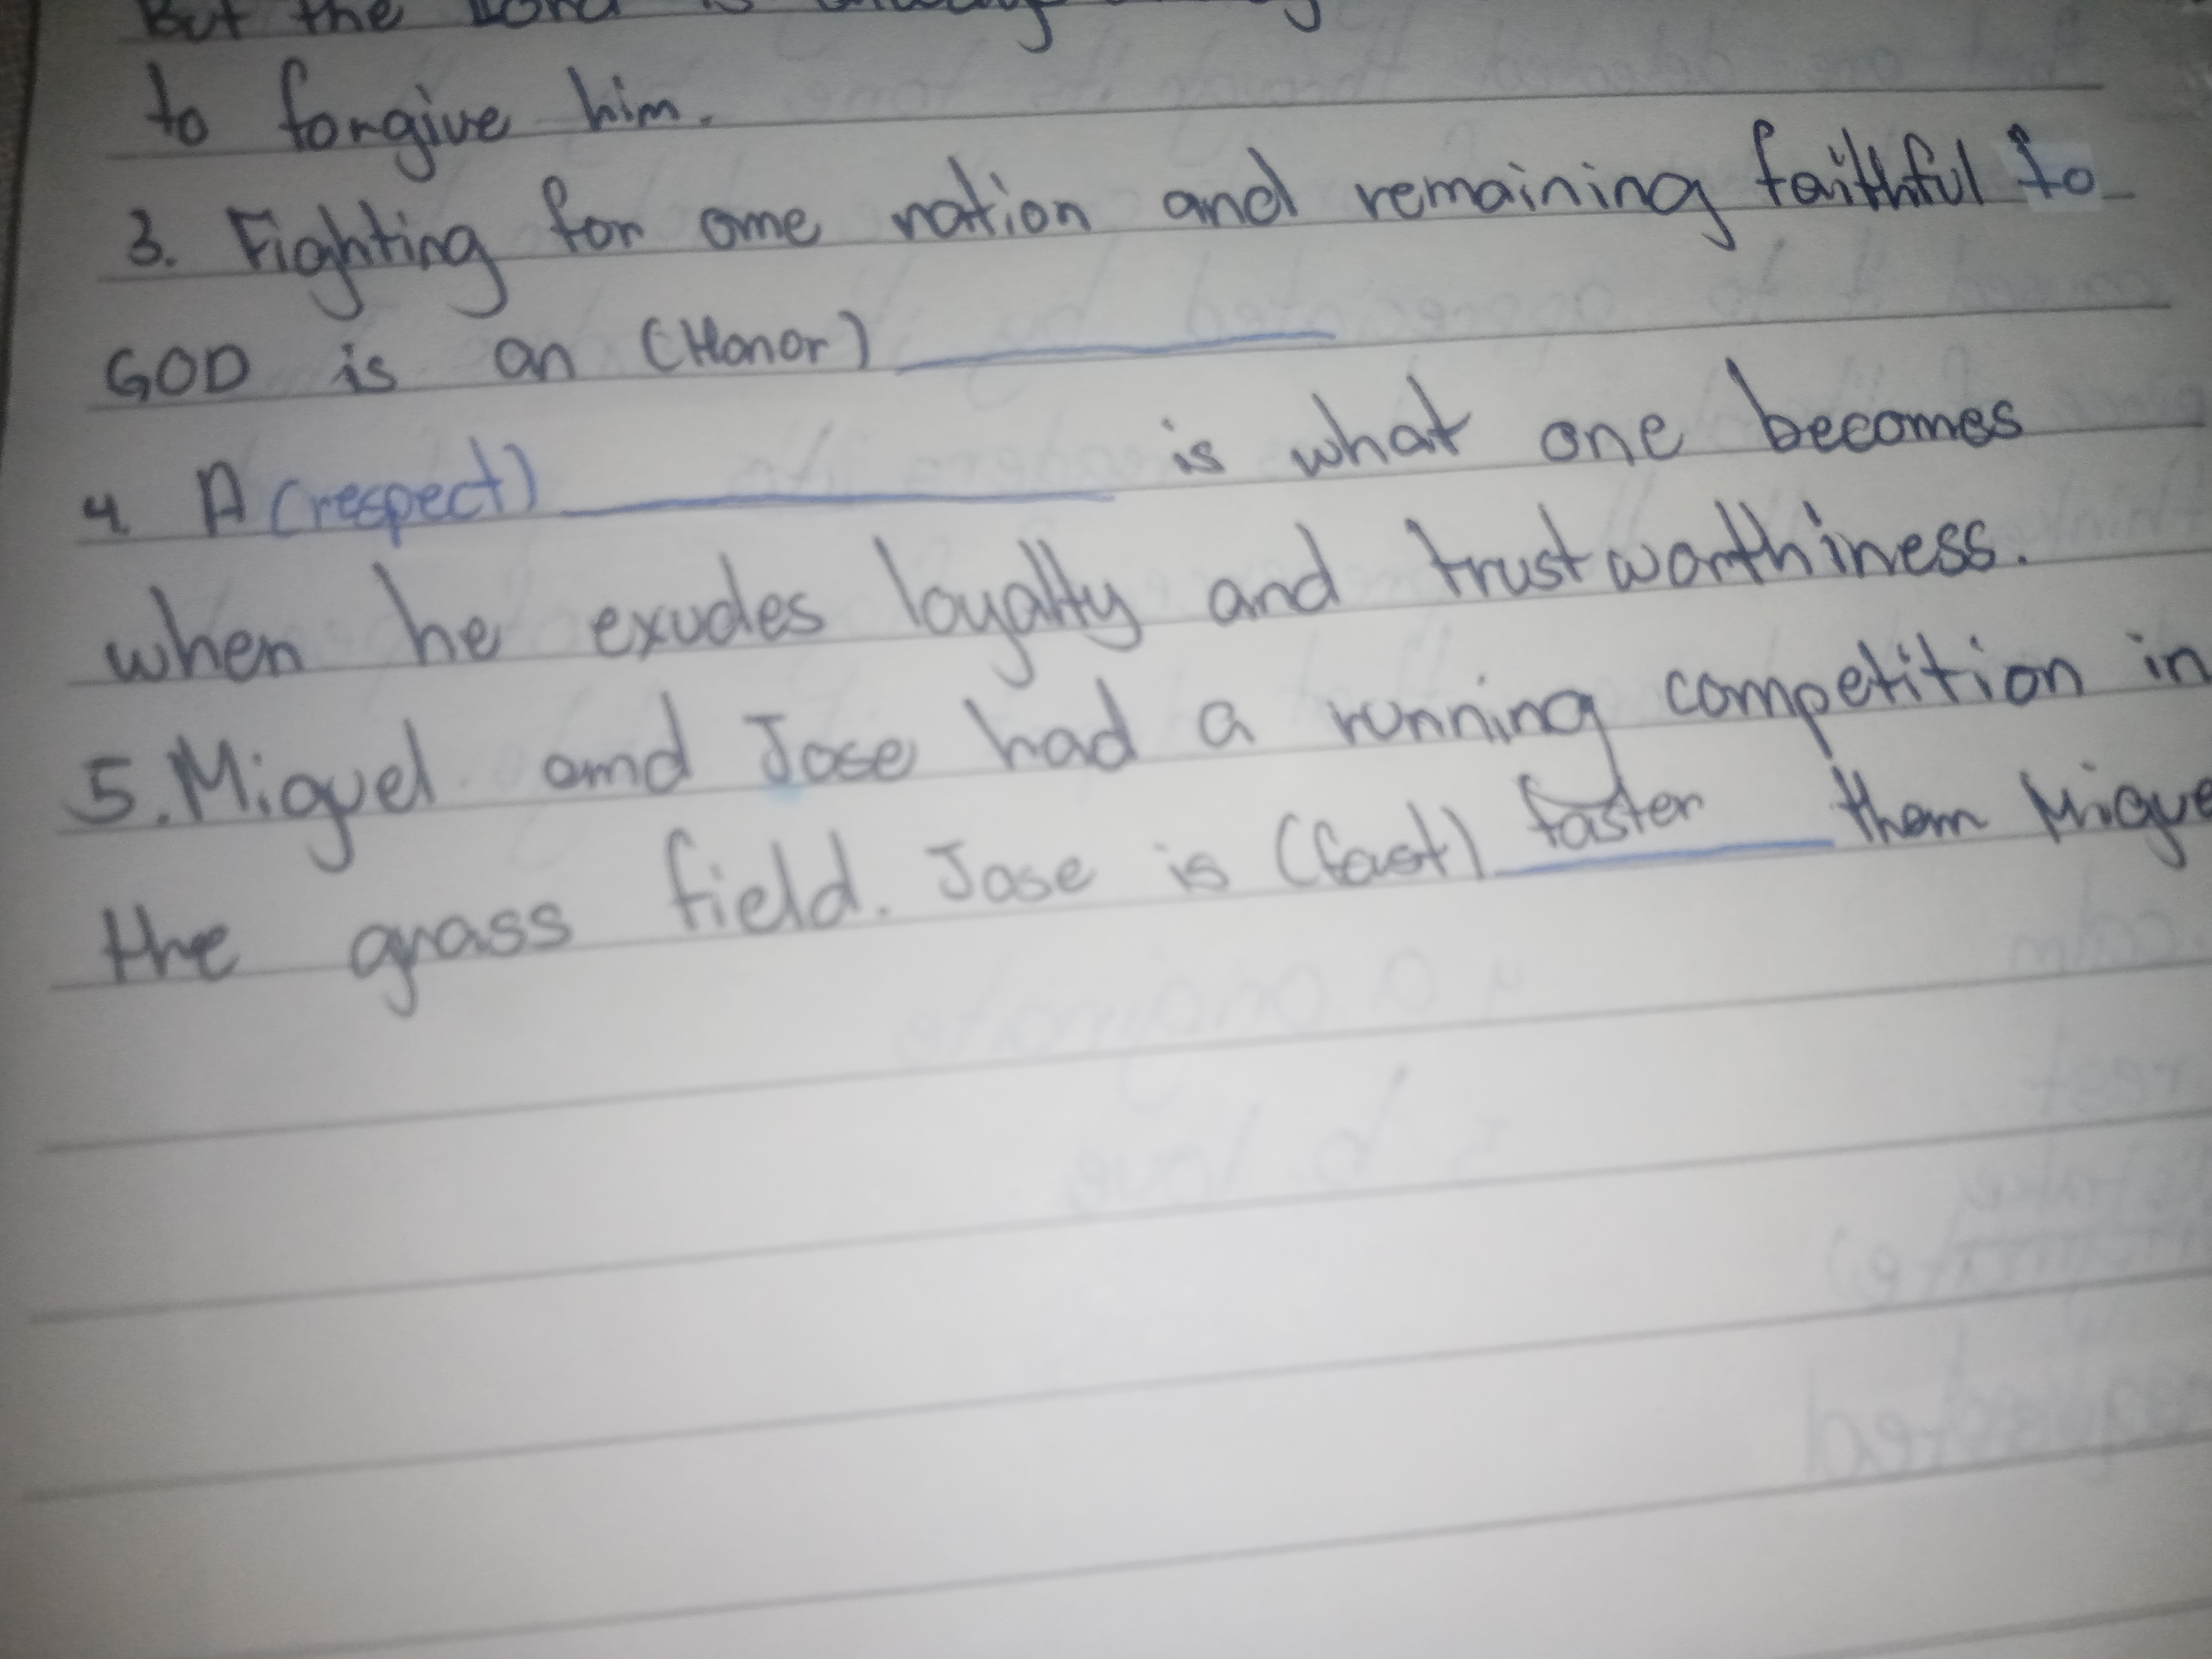 But the Lord is always
to forgive him.
3. Fighting for one nation and remaining faithful to
GOD is an (Honor) ______
4. A (respect) ______ is what one becomes
when he exudes loyalty and trustworthiness.
5. Miguel and Jose had a running competition in
the grass field. Jose is (fast) faster than Migue